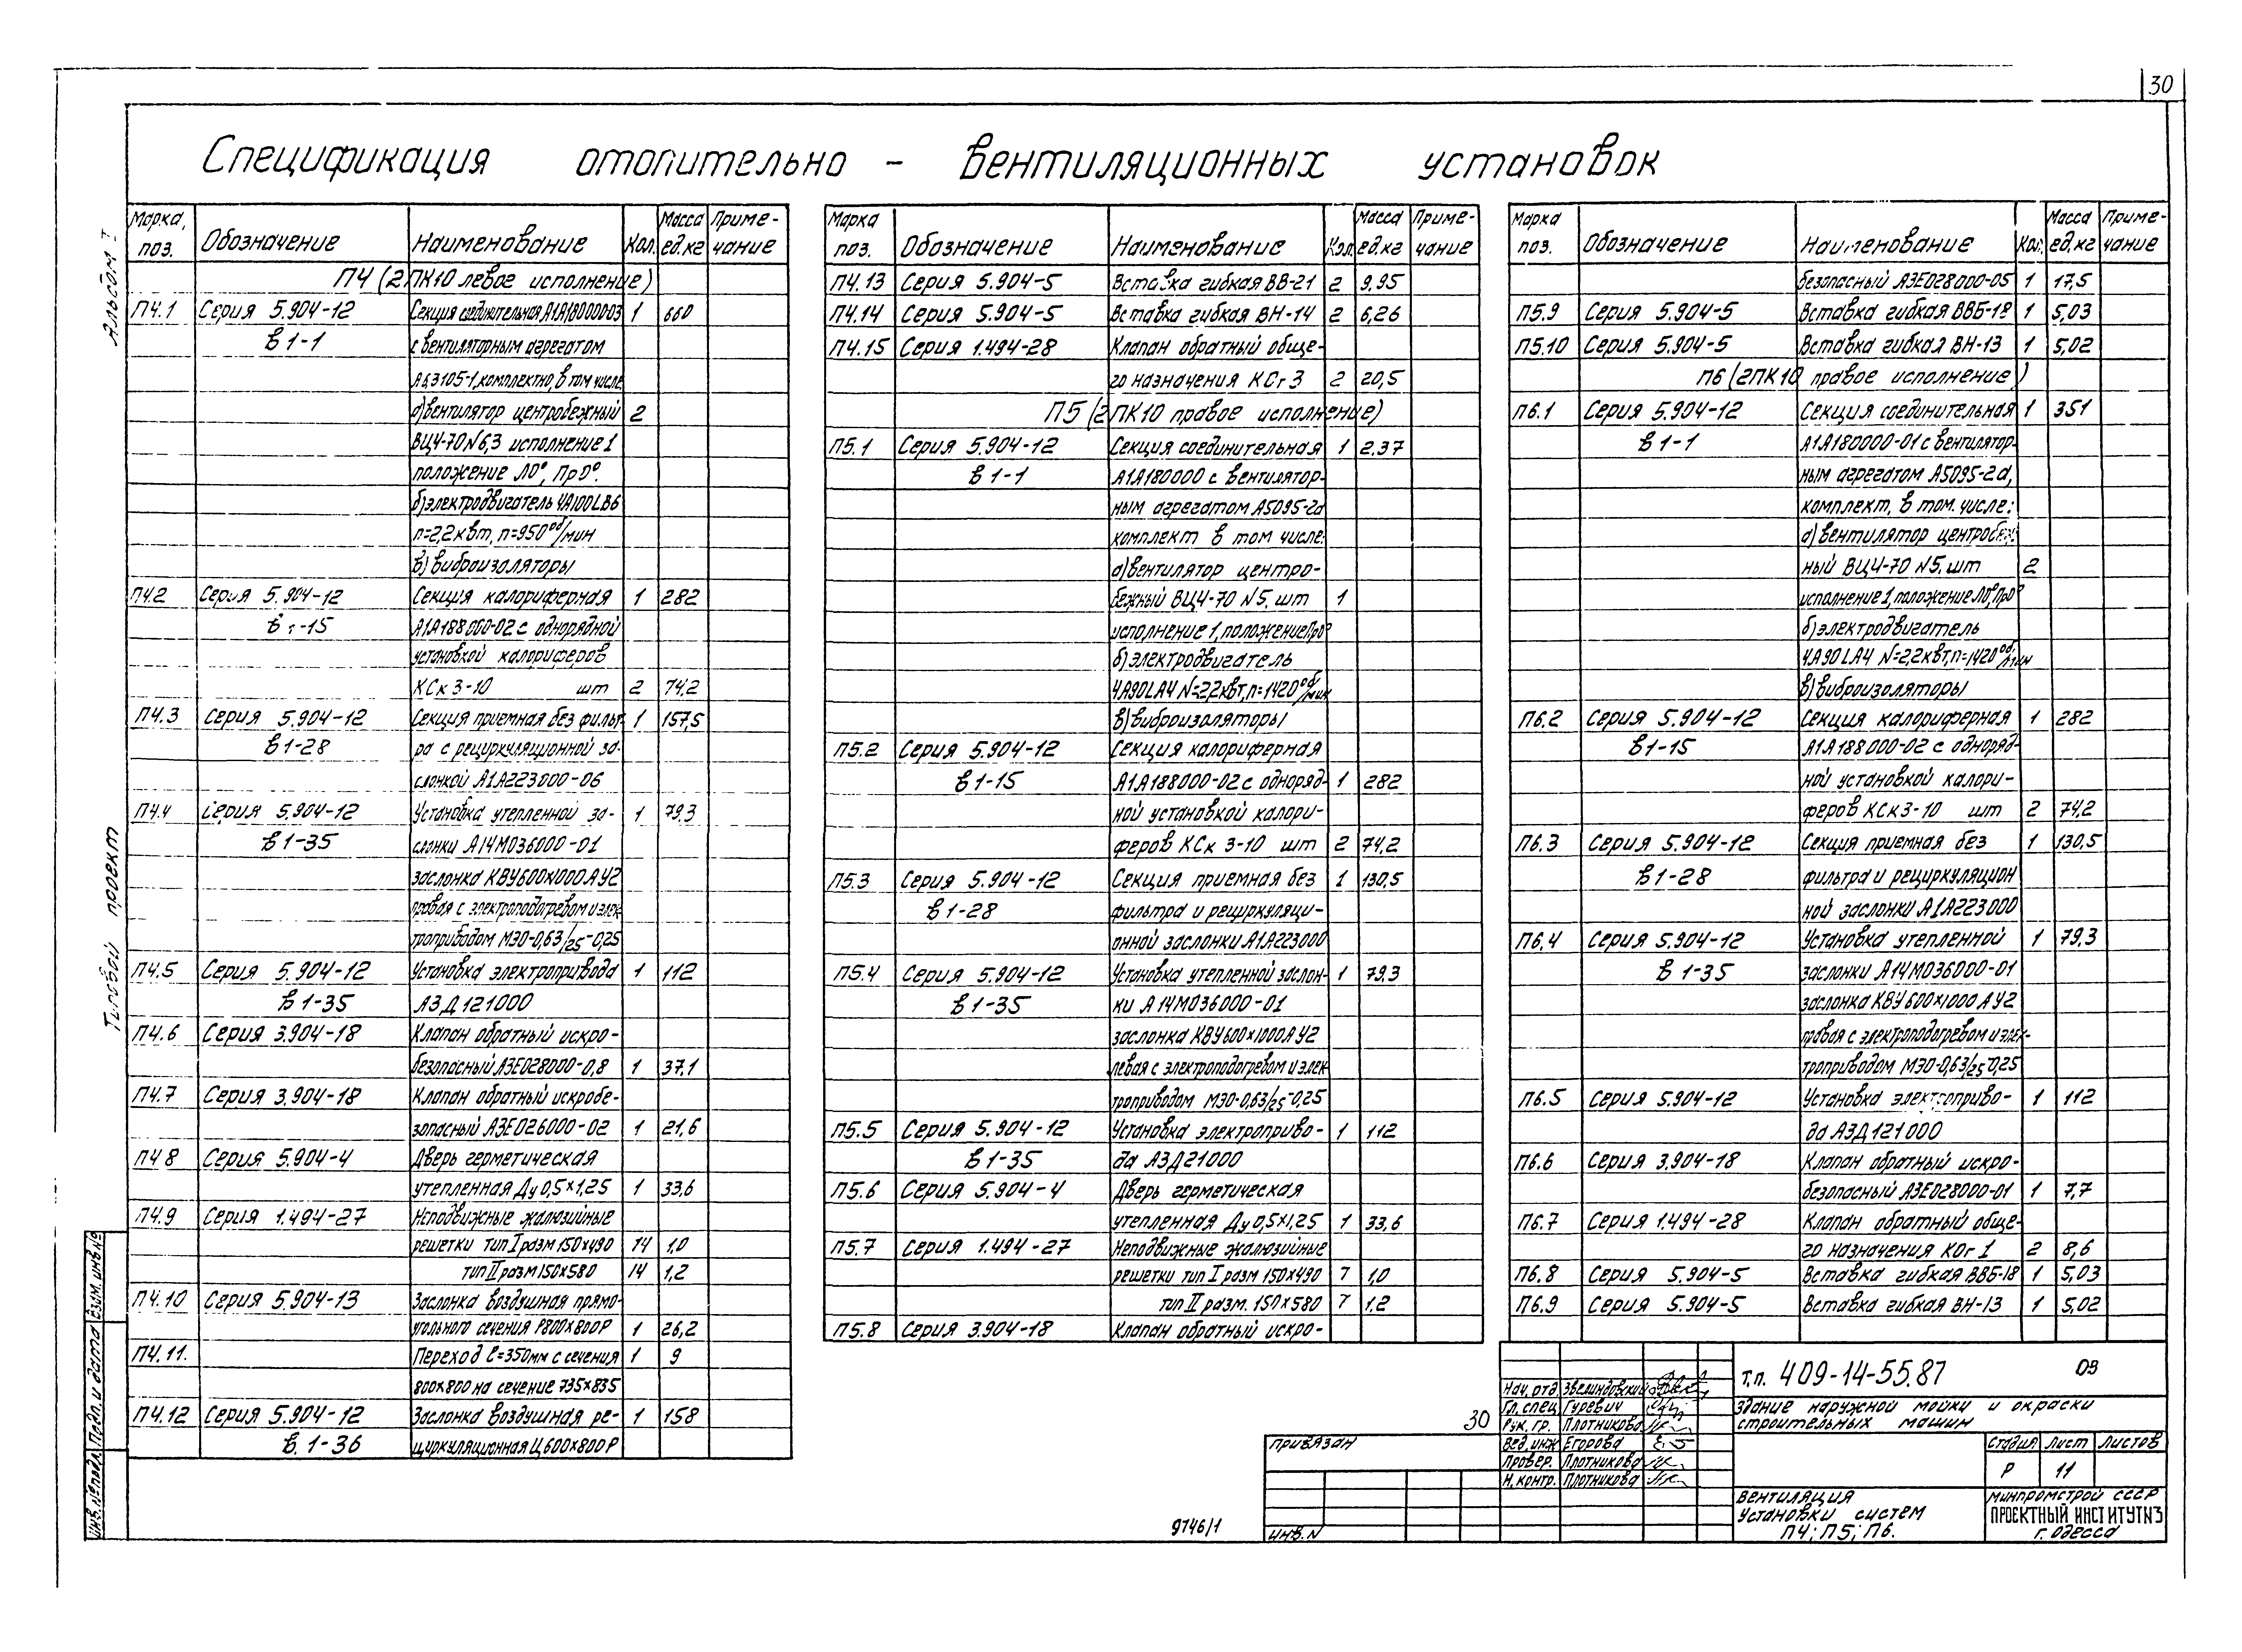 30
Спецификация отопительно - вентиляционных установок
Альбом I
Типовой проект
Марка, поз. Обозначение Наименование Кол. Масса ед.кг Приме-чание
П4 (2ПК10 левое исполнение)
П4.1 Серия 5.904-12 Секция соединительная А1А18000003 1 660
в 1-1 с вентиляторным агрегатом
А6,3105-1, комплектно, в том числе
а) вентилятор центробежный 2
ВЦ4-70 N6,3 исполнение 1
положение Л0°, Пр0°.
б) электродвигатель 4А100LB6
n=2,2квт, n=950 об/мин
в) виброизоляторы
П4.2 Серия 5.904-12 Секция калориферная 1 282
в 1-15 А1А188000-02 с однорядной
установкой калориферов
КСк 3-10 шт 2 74,2
П4.3 Серия 5.904-12 Секция приемная без фильт- 1 157,5
в 1-28 ра с рециркуляционной за-
слонкой А1А223000-06
П4.4 Серия 5.904-12 Установка утепленной за- 1 79,3
в 1-35 слонки А14М036000-01
заслонка КВУ600х1000АУ2
правая с электроподогревом и элек-
троприводом МЭО-0,63/25-0,25
П4.5 Серия 5.904-12 Установка электропривода 1 112
в 1-35 АЗД121000
П4.6 Серия 3.904-18 Клапан обратный искро-
безопасный АЗЕ028000-0,8 1 37,1
П4.7 Серия 3.904-18 Клапан обратный искробе-
зопасный АЗЕ026000-02 1 21,6
П4 8 Серия 5.904-4 Дверь герметическая
утепленная Ду 0,5×1,25 1 33,6
П4.9 Серия 1.494-27 Неподвижные жалюзийные
решетки тип I разм 150х490 14 1,0
тип II разм 150х580 14 1,2
П4.10 Серия 5.904-13 Заслонка воздушная прямо-
угольного сечения Р800х800Р 1 26,2
П4.11. Переход ℓ=350мм с сечения 1 9
800×800 на сечение 735×835
П4.12 Серия 5.904-12 Заслонка воздушная ре- 1 158
в. 1-36 циркуляционная Ц600х800Р
Марка поз. Обозначение Наименование Кол. Масса ед.кг Приме-чание
П4.13 Серия 5.904-5 Вставка гибкая ВВ-21 2 9,95
П4.14 Серия 5.904-5 Вставка гибкая ВН-14 2 6,26
П4.15 Серия 1.494-28 Клапан обратный обще-
го назначения КСг 3 2 20,5
П5 (2ПК10 правое исполнение)
П5.1 Серия 5.904-12 Секция соединительная 1 2.37
в 1-1 А1А180000 с вентилятор-
ным агрегатом А5095-2а
комплект в том числе:
а) вентилятор центро-
бежный ВЦ4-70 N5. шт 1
исполнение 1, положение Пр0°
б) электродвигатель
4А90LА4 N=2,2квт, n=1420 об/мин
в) виброизоляторы
П5.2 Серия 5.904-12 Секция калориферная
в 1-15 А1А188000-02 с одноряд- 1 282
ной установкой калори-
феров КСк 3-10 шт 2 74,2
П5.3 Серия 5.904-12 Секция приемная без 1 130,5
в 1-28 фильтра и рециркуляци-
онной заслонки А1А223000
П5.4 Серия 5.904-12 Установка утепленной заслон- 1 79,3
в 1-35 ки А14М036000-01
заслонка КВУ600х1000АУ2
левая с электроподогревом и элек-
троприводом МЭО-0,63/25-0,25
П5.5 Серия 5.904-12 Установка электроприво- 1 112
в 1-35 да АЗД21000
П5.6 Серия 5.904-4 Дверь герметическая
утепленная Ду 0,5×1,25 1 33,6
П5.7 Серия 1.494-27 Неподвижные жалюзийные
решетки тип I разм 150×490 7 1,0
тип II разм. 150×580 7 1.2
П5.8 Серия 3.904-18 Клапан обратный искро-
Марка поз. Обозначение Наименование Кол. Масса ед.кг Приме-чание
безопасный АЗЕ028000-05 1 17,5
П5.9 Серия 5.904-5 Вставка гибкая ВВБ-18 1 5,03
П5.10 Серия 5.904-5 Вставка гибкая ВН-13 1 5,02
П6 (2ПК10 правое исполнение)
П6.1 Серия 5.904-12 Секция соединительная 1 351
в 1-1 А1А180000-01 с вентилятор-
ным агрегатом А5095-2а,
комплект, в том. числе:
а) вентилятор центробеж-
ный ВЦ4-70 N5. шт 2
исполнение 1, положение Л0°, Пр0°
б) электродвигатель
4А90LА4 N=2,2квт, n=1420 об/мин
в) виброизоляторы
П6.2 Серия 5.904-12 Секция калориферная 1 282
в 1-15 А1А188000-02 с одноряд-
ной установкой калори-
феров КСк3-10 шт 2 74,2
П6.3 Серия 5.904-12 Секция приемная без 1 130,5
в 1-28 фильтра и рециркуляцион
ной заслонки А1А223000
П6.4 Серия 5.904-12 Установка утепленной 1 79,3
в 1-35 заслонки А14М036000-01
заслонка КВУ600×1000АУ2
правая с электроподогревом и элек-
троприводом МЭО-0,63/25-0,25
П6.5 Серия 5.904-12 Установка электроприво- 1 112
да АЗД121000
П6.6 Серия 3.904-18 Клапан обратный искро-
безопасный АЗЕ028000-01 1 7,7
П6.7 Серия 1.494-28 Клапан обратный обще-
го назначения КОг 1 2 8,6
П6.8 Серия 5.904-5 Вставка гибкая ВВБ-18 1 5,03
П6.9 Серия 5.904-5 Вставка гибкая ВН-13 1 5,02
Т.п. 409-14-55.87 ОВ
Здание наружной мойки и окраски
строительных машин
Нач. отд. Звелиндовский
Гл. спец. Гуревич
Рук. гр. Плотникова
Вед. инж Егорова
Провер. Плотникова
Н. контр. Плотникова
Стадия Лист Листов
Р 11
Вентиляция
Установки систем
П4; П5; П6.
Минпромстрой СССР
ПРОЕКТНЫЙ ИНСТИТУТ №3
г. Одесса
30
Привязан
Инв. N
9746/1
Инв. № подл. Подп. и дата Взам. инв №